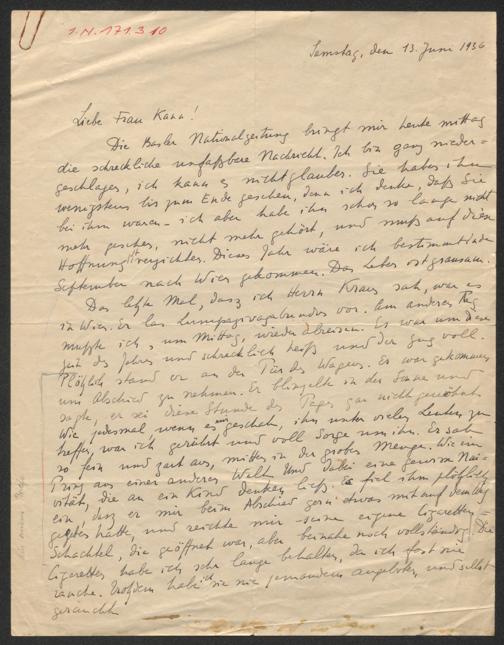 1.N. 171.310
Samstag, den 13. Juni 1936
Liebe Frau Kann!
Die Basler Nationalzeitung bringt mir heute mittag
die schreckliche unfaßbare Nachricht. Ich bin ganz nieder-
geschlagen, ich kann es nicht glauben. Sie haben ihn
wenigstens bis zum Ende gesehen, denn ich denke, daß Sie
bei ihm waren - ich aber habe ihn schon so lange nicht
mehr gesehen, nicht mehr gehört, und muß auf diese
Hoffnung verzichten. Dieses Jahr wäre ich bestimmt im
September nach Wien gekommen. Das Leben ist grausam.
Das letzte Mal, dasz ich Herrn Kraus sah, war es
in Wien. Er las Lumpazivagabundus vor. Am anderen Tag
muszte ich, um Mittag, wieder abreisen. Es war um diese
Zeit des Jahres und schrecklich heiß und der Zug voll.
Plötzlich stand er an der Tür des Wagens. Er war gekommen
um Abschied zu nehmen. Er blinzelte in der Sonne und
sagte, er sei diese Stunde des Tages gar nicht gewöhnt.
Wie jedesmal wenn es geschah, ihn unter vielen Leuten zu
treffen, war ich gerührt und voll Sorge um ihn. Er sah
so fein und zart aus, mitten in der groben Menge. Wie ein
Prinz aus einer anderen Welt. Und dabei eine gewisse Nai-
vität, die an ein Kind denken ließ. Es fiel ihm plötzlich
ein, dasz er mir beim Abschied gern etwas mit auf den Weg
gegeben hätte, und reichte mir seine eigene Cigaretten-
Schachtel, die geöffnet war, aber beinahe noch vollständig. Die
Cigaretten habe ich sehr lange behalten, da ich fast nie
rauche. Trotzdem habe ich sie nie jemandem angeboten und selbst
geraucht